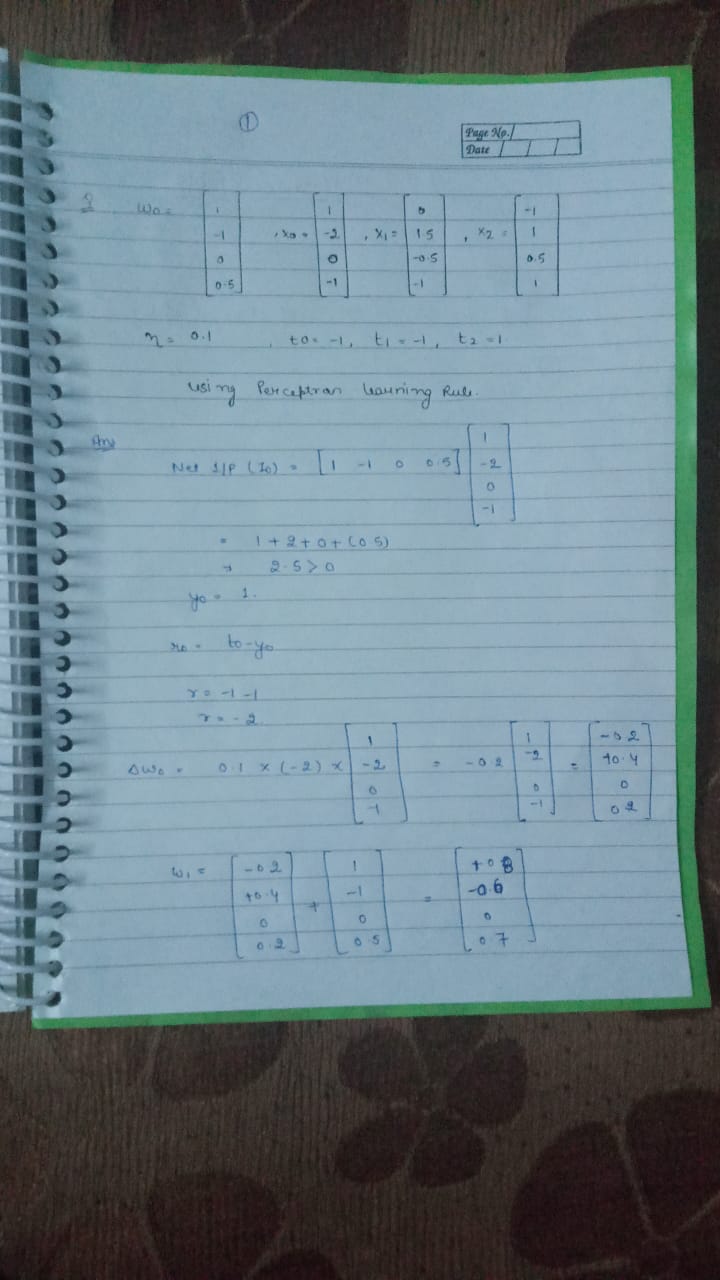 ①
Page No.
Date
Q. W0 = [1 -1 0 0.5], x0 = [1 -2 0 -1], x1 = [0 1.5 -0.5 -1], x2 = [-1 1 0.5 1]
η = 0.1, t0 = -1, t1 = -1, t2 = 1
using Perceptron learning Rule.
Ans
Net I/P (I0) = [1 -1 0 0.5] [1 -2 0 -1]
= 1+2+0+(0.5)
→ 2.5>0
y0 = 1.
r0 = t0-y0
r = -1-1
r = -2
ΔW0 = 0.1 × (-2) × [1 -2 0 -1] = -0.2 [1 -2 0 -1] = [-0.2 +0.4 0 0.2]
W1 = [-0.2 +0.4 0 0.2] + [1 -1 0 0.5] = [+0.8 -0.6 0 0.7]